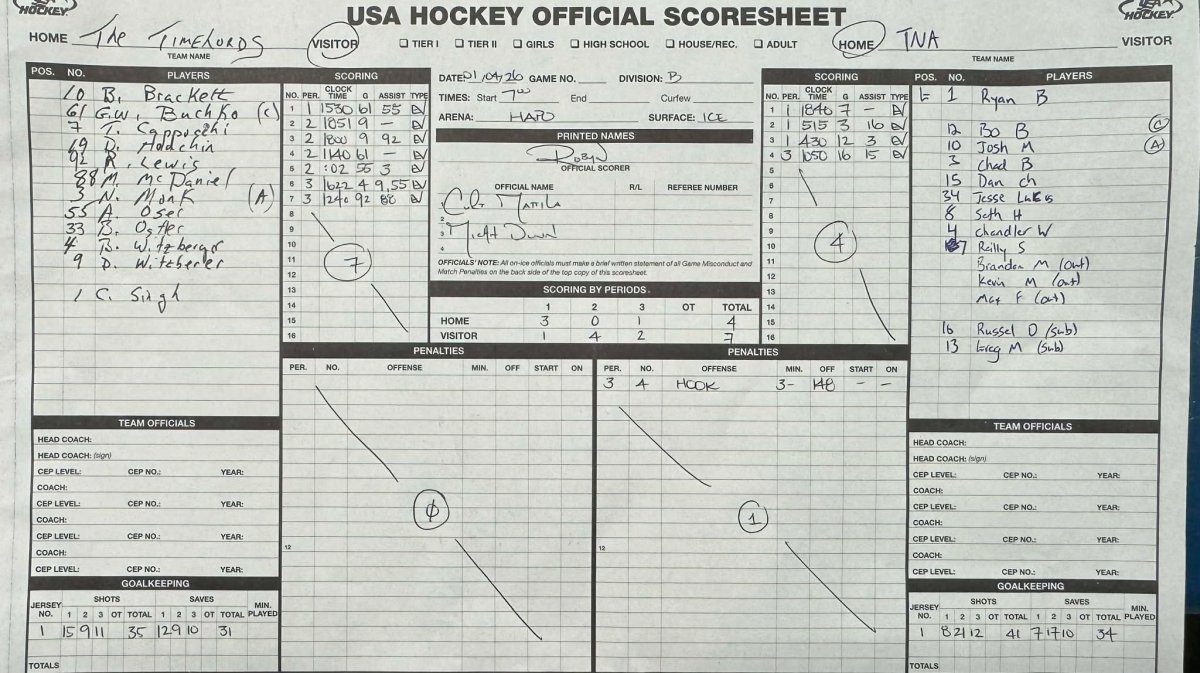 USA HOCKEY
USA HOCKEY OFFICIAL SCORESHEET
USA HOCKEY
HOME The TIMELORDS VISITOR
TEAM NAME
☐ TIER I ☐ TIER II ☐ GIRLS ☐ HIGH SCHOOL ☐ HOUSE/REC. ☐ ADULT
HOME TNA VISITOR
TEAM NAME
POS. NO. PLAYERS
10 B. Brackett
61 G.W. Buchko (C)
7 T.
69 D. Hodchin
92 R. Lewis
88 M. McDaniel
3 N. Monk (A)
55 A. Oser
33 B. Ostler
4 B. Witzberger
9 D. Witzberer
1 C. Singh
SCORING
NO. PER. CLOCK TIME G ASSIST TYPE
1 1 1530 61 55 EV
2 2 1851 9 - EV
3 2 1800 9 92 EV
4 2 1140 61 - EV
5 2 :02 55 3 EV
6 3 1622 4 9,55 EV
7 3 1240 92 88 EV
8
9
10
11
12
13
14
15
16
7
DATE: 01/04/26 GAME NO. DIVISION: B
TIMES: Start 7:00 End Curfew
ARENA: HAPO SURFACE: ICE
PRINTED NAMES
Robyn
OFFICIAL SCORER
OFFICIAL NAME R/L REFEREE NUMBER
1 Curt Mattila
2
3
4
OFFICIALS' NOTE: All on-ice officials must make a brief written statement of all Game Misconduct and
Match Penalties on the back side of the top copy of this scoresheet.
SCORING BY PERIODS
1 2 3 OT TOTAL
HOME 3 0 1 4
VISITOR 1 4 2 7
SCORING
NO. PER. CLOCK TIME G ASSIST TYPE
1 1 1840 7 - EV
2 1 515 3 16 EV
3 1 430 12 3 EV
4 3 1050 16 15 EV
5
6
7
8
9
10
11
12
13
14
15
16
4
POS. NO. PLAYERS
1 Ryan B
12 Bo B (C)
10 Josh M (A)
3 Chad B
15 Dan Ch
34 Jesse Lukes
8 Seth H
4 Chandler W
7 Reilly S
Brandon M (out)
Kevin M (out)
Max F (out)
16 Russel D (sub)
13 Greg M (sub)
PENALTIES
PER. NO. OFFENSE MIN. OFF START ON
12
0
PENALTIES
PER. NO. OFFENSE MIN. OFF START ON
3 4 HOOK 3- 148 - -
12
1
TEAM OFFICIALS
HEAD COACH:
HEAD COACH: (sign)
CEP LEVEL: CEP NO.: YEAR:
COACH:
CEP LEVEL: CEP NO.: YEAR:
COACH:
CEP LEVEL: CEP NO.: YEAR:
COACH:
CEP LEVEL: CEP NO.: YEAR:
GOALKEEPING
JERSEY NO. SHOTS SAVES MIN. PLAYED
1 2 3 OT TOTAL 1 2 3 OT TOTAL
1 15 9 11 35 12 9 10 31
TOTALS
TEAM OFFICIALS
HEAD COACH:
HEAD COACH: (sign)
CEP LEVEL: CEP NO.: YEAR:
COACH:
CEP LEVEL: CEP NO.: YEAR:
COACH:
CEP LEVEL: CEP NO.: YEAR:
COACH:
CEP LEVEL: CEP NO.: YEAR:
GOALKEEPING
JERSEY NO. SHOTS SAVES MIN. PLAYED
1 2 3 OT TOTAL 1 2 3 OT TOTAL
1 8 21 12 41 7 17 10 34
TOTALS